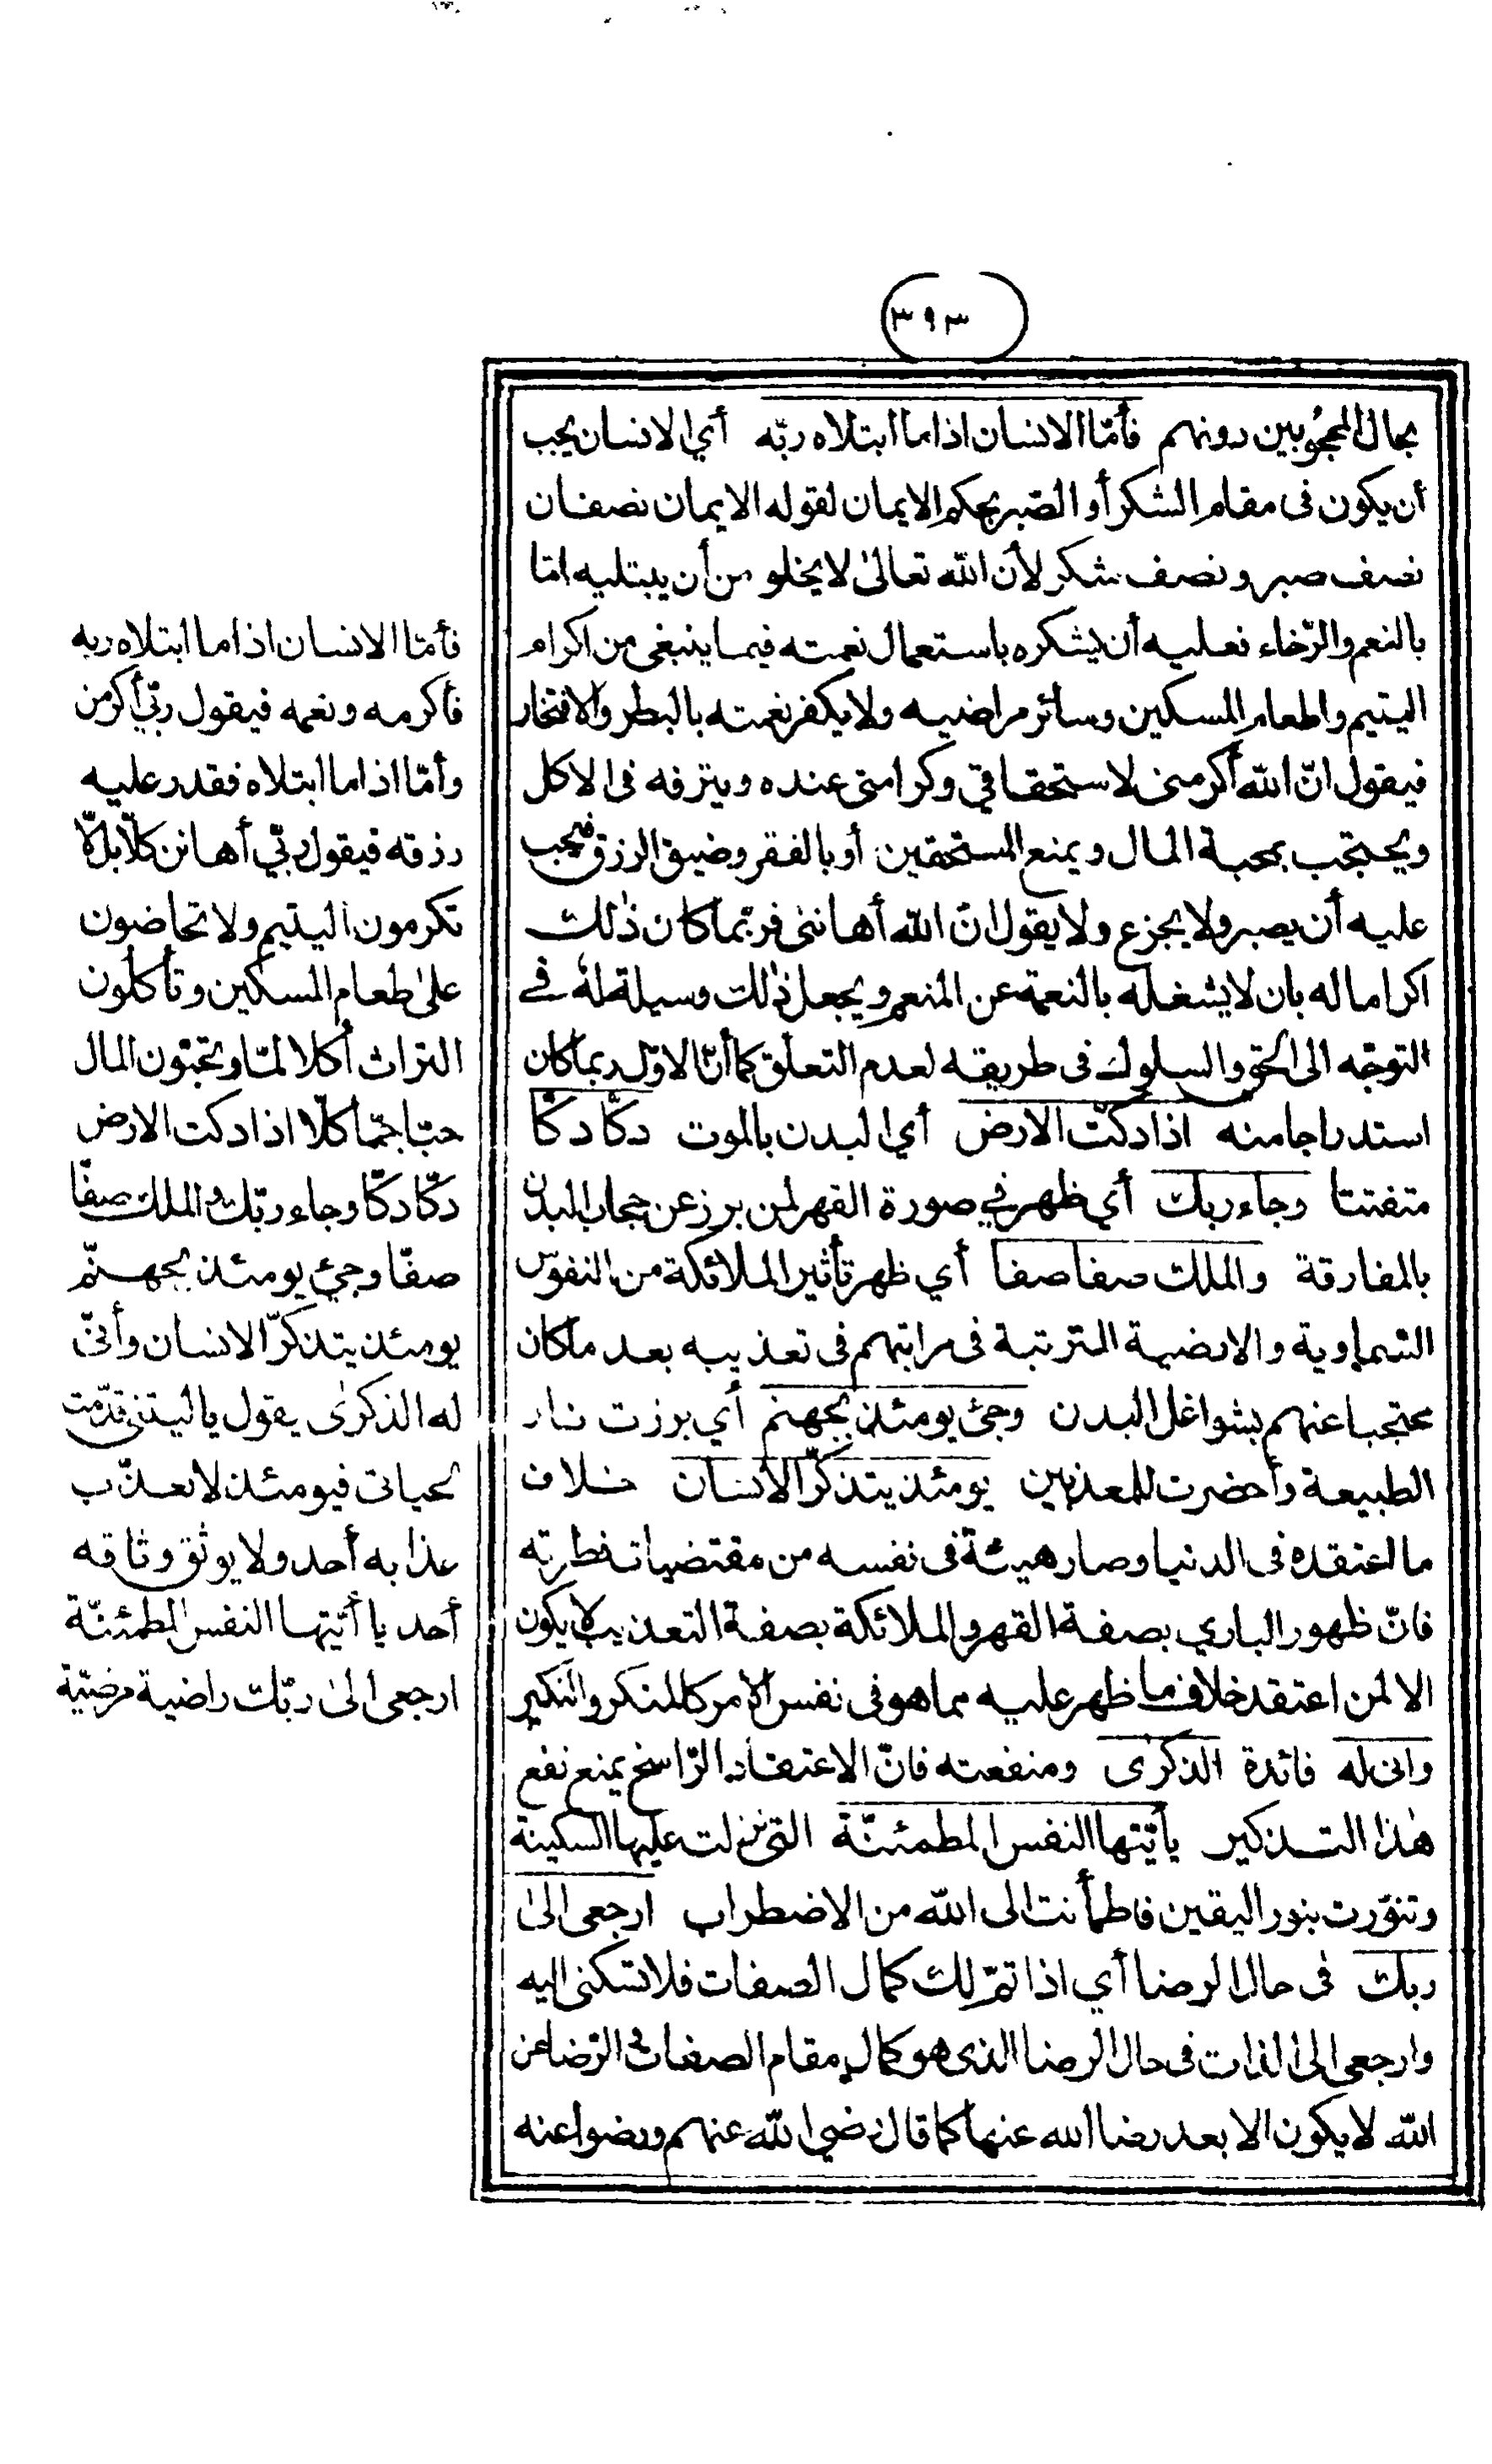 (٣٩٣)
بحال المحجوبين دونهم فأمّا الانسان اذا ما ابتلاه ربّه أي الانسان يجب
أن يكون في مقام الشكر أو الصّبر بحكم الايمان لقوله الايمان نصفان
نصف صبر ونصف شكر لأن الله تعالىٰ لا يخلو من أن يبتليه امّا
بالنعم والرّخاء فعليه أن يشكره باستعمال نعمته فيما ينبغي من اكرام
اليتيم واطعام المسكين وسائر مراضيه ولا يكفر نعمته بالبطر والافتخار
فيقول انّ الله أكرمنى لاستحقاقي وكرامتى عنده ويترفه فى الاكل
ويحتجب بمحبة المال ويمنع المستحقين أو بالفقر وضيق الرزق فيجب
عليه أن يصبر ولا يجزع ولا يقول انّ الله أهاننى فربّما كان ذٰلك
اكراما له بان لا يشغله بالنعمة عن المنعم ويجعل ذٰلك وسيلة له في
التوجّه الى الحق والسلوك فى طريقه لعدم التعلّق كما أنّ الاوّل ربما كان
استدراجا منه اذا دكّت الارض أي البدن بالموت دكّا دكّا
متفتتا وجاء ربك أي ظهر في صورة القهر لمن برز عن حجاب البدن
بالمفارقة والملك صفا صفا أي ظهر تأثير الملائكة من النفوس
السّماوية والارضية المترتبة فى مراتبهم فى تعذيبه بعد ما كان
محتجبا عنهم بشواغل البدن وجئ يومئذ بجهنم أي برزت نار
الطبيعة وأحضرت للمعذبين يومئذ يتذكّر الانسان خلاف
ما اعتقده فى الدنيا وصار هيئة فى نفسه من مقتضيات فطرته
فانّ ظهور الباري بصفة القهر والملائكة بصفة التعذيب لا يكون
الا لمن اعتقد خلاف ما ظهر عليه مما هو فى نفس الأمر كالمنكر والنكير
وانى له فائدة الذكرى ومنفعته فانّ الاعتقاد الرّاسخ يمنع نفع
هٰذا التذكير يا أيّتها النفس المطمئنّة التى نزلت عليها السكينة
وتنوّرت بنور اليقين فاطمأنت الى الله من الاضطراب ارجعى الىٰ
ربك فى حال الرضا أي اذا تمّ لك كمال الصفات فلا تسكنى اليه
وارجعى الى الذات فى حال الرضا الذى هو كمال مقام الصفات فى الرّضا عن
الله لا يكون الا بعد رضا الله عنها كما قال رضي الله عنهم ورضوا عنه
فأمّا الانسان اذا ما ابتلاه ربه
فأكرمه ونعمه فيقول ربّي أكرمن
وأمّا اذا ما ابتلاه فقدر عليه
رزقه فيقول ربّي أهانن كلّا بل لا
تكرمون اليتيم ولا تحاضون
علىٰ طعام المسكين وتأكلون
التراث أكلا لمّا وتحبّون المال
حبّا جمّا كلّا اذا دكت الارض
دكّا دكّا وجاء ربّك والملك صفّا
صفّا وجئ يومئذ بجهنّم
يومئذ يتذكّر الانسان وأنّى
له الذكرىٰ يقول يا ليتنى قدّمت
لحياتى فيومئذ لا يعذّب
عذابه أحد ولا يوثق وثاقه
أحد يا أيّتها النفس المطمئنّة
ارجعى الىٰ ربّك راضية مرضيّة